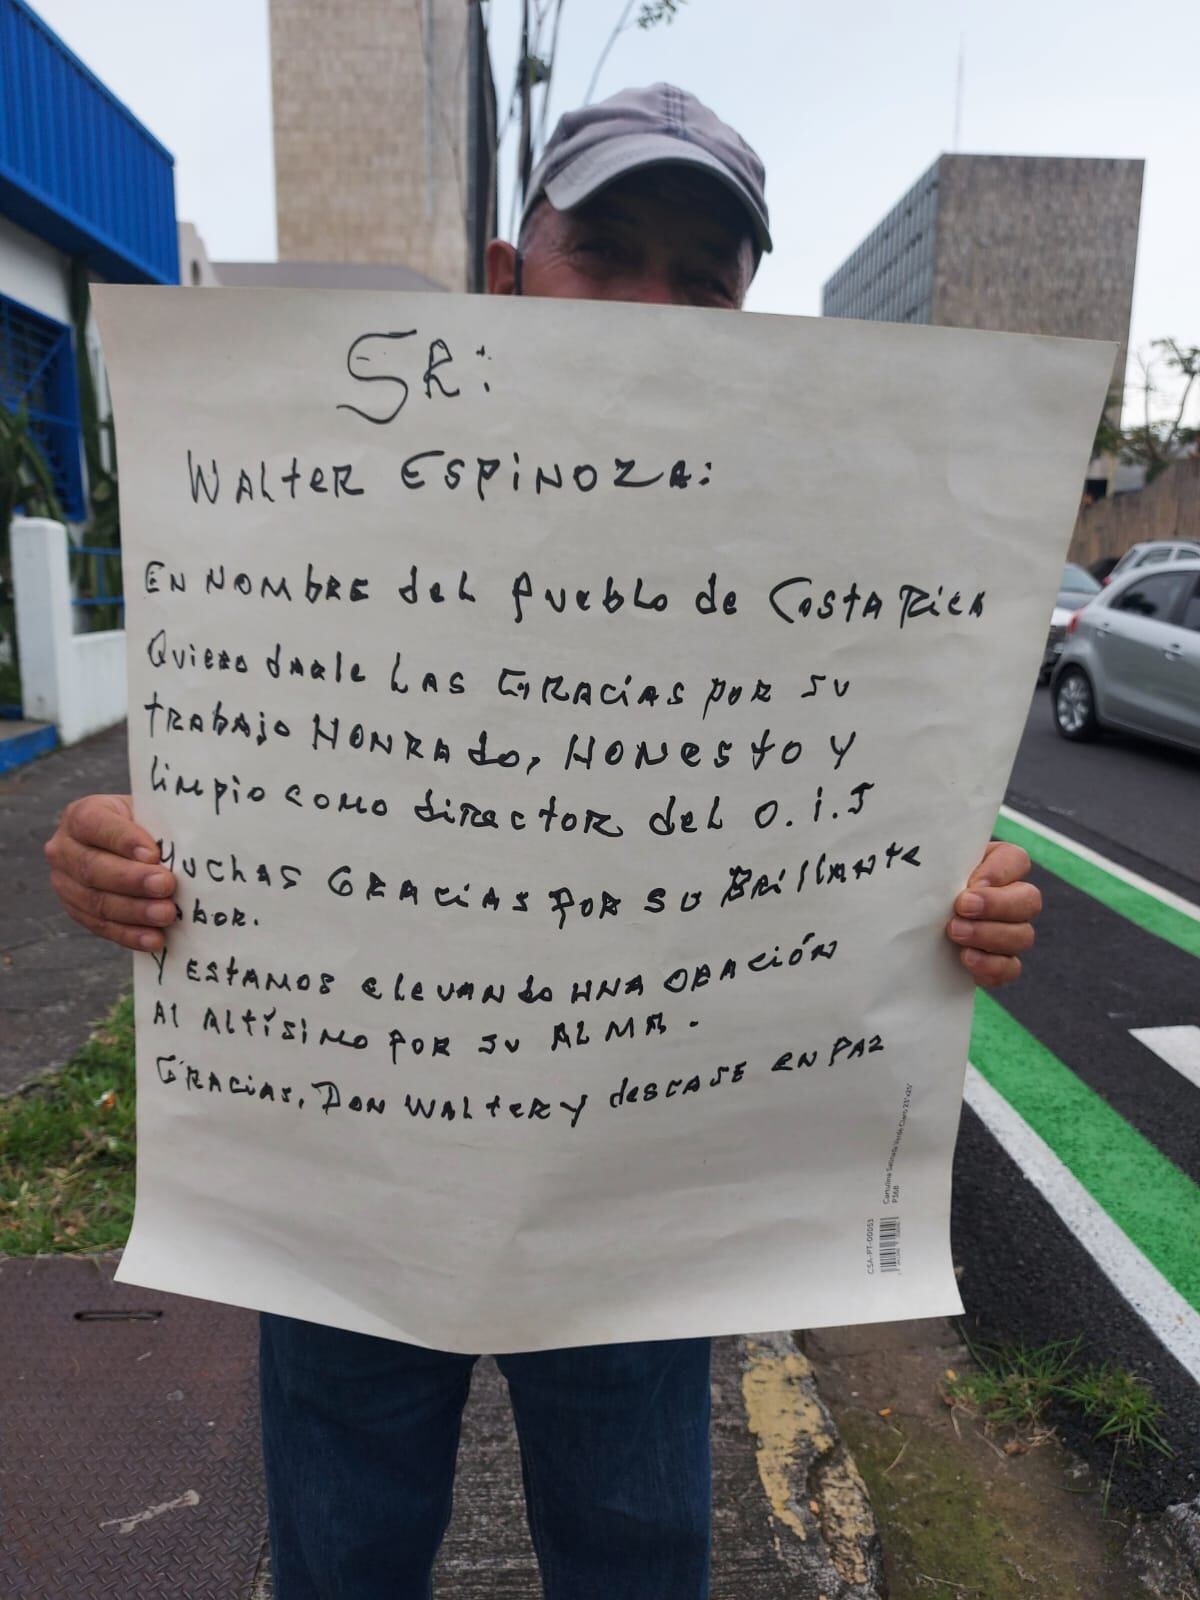 SR:
WALTER ESPINOZA:
EN NOMBRE del Pueblo de COSTA RICA
Quiero darle LAS GRACIAS POR SU
TRABAJO HONRADO, HONESTO Y
limpio como director del O.I.J
MUCHAS GRACIAS POR SU BRILLANTE
abor.
Y ESTAMOS elevando UNA ORACIÓN
Al ALTÍSIMO POR SU ALMA.
GRACIAS, DON WALTER Y descase EN PAZ
Cartulina Satinada Verde Claro 23"x25"
P36B
CSA-PT-00053